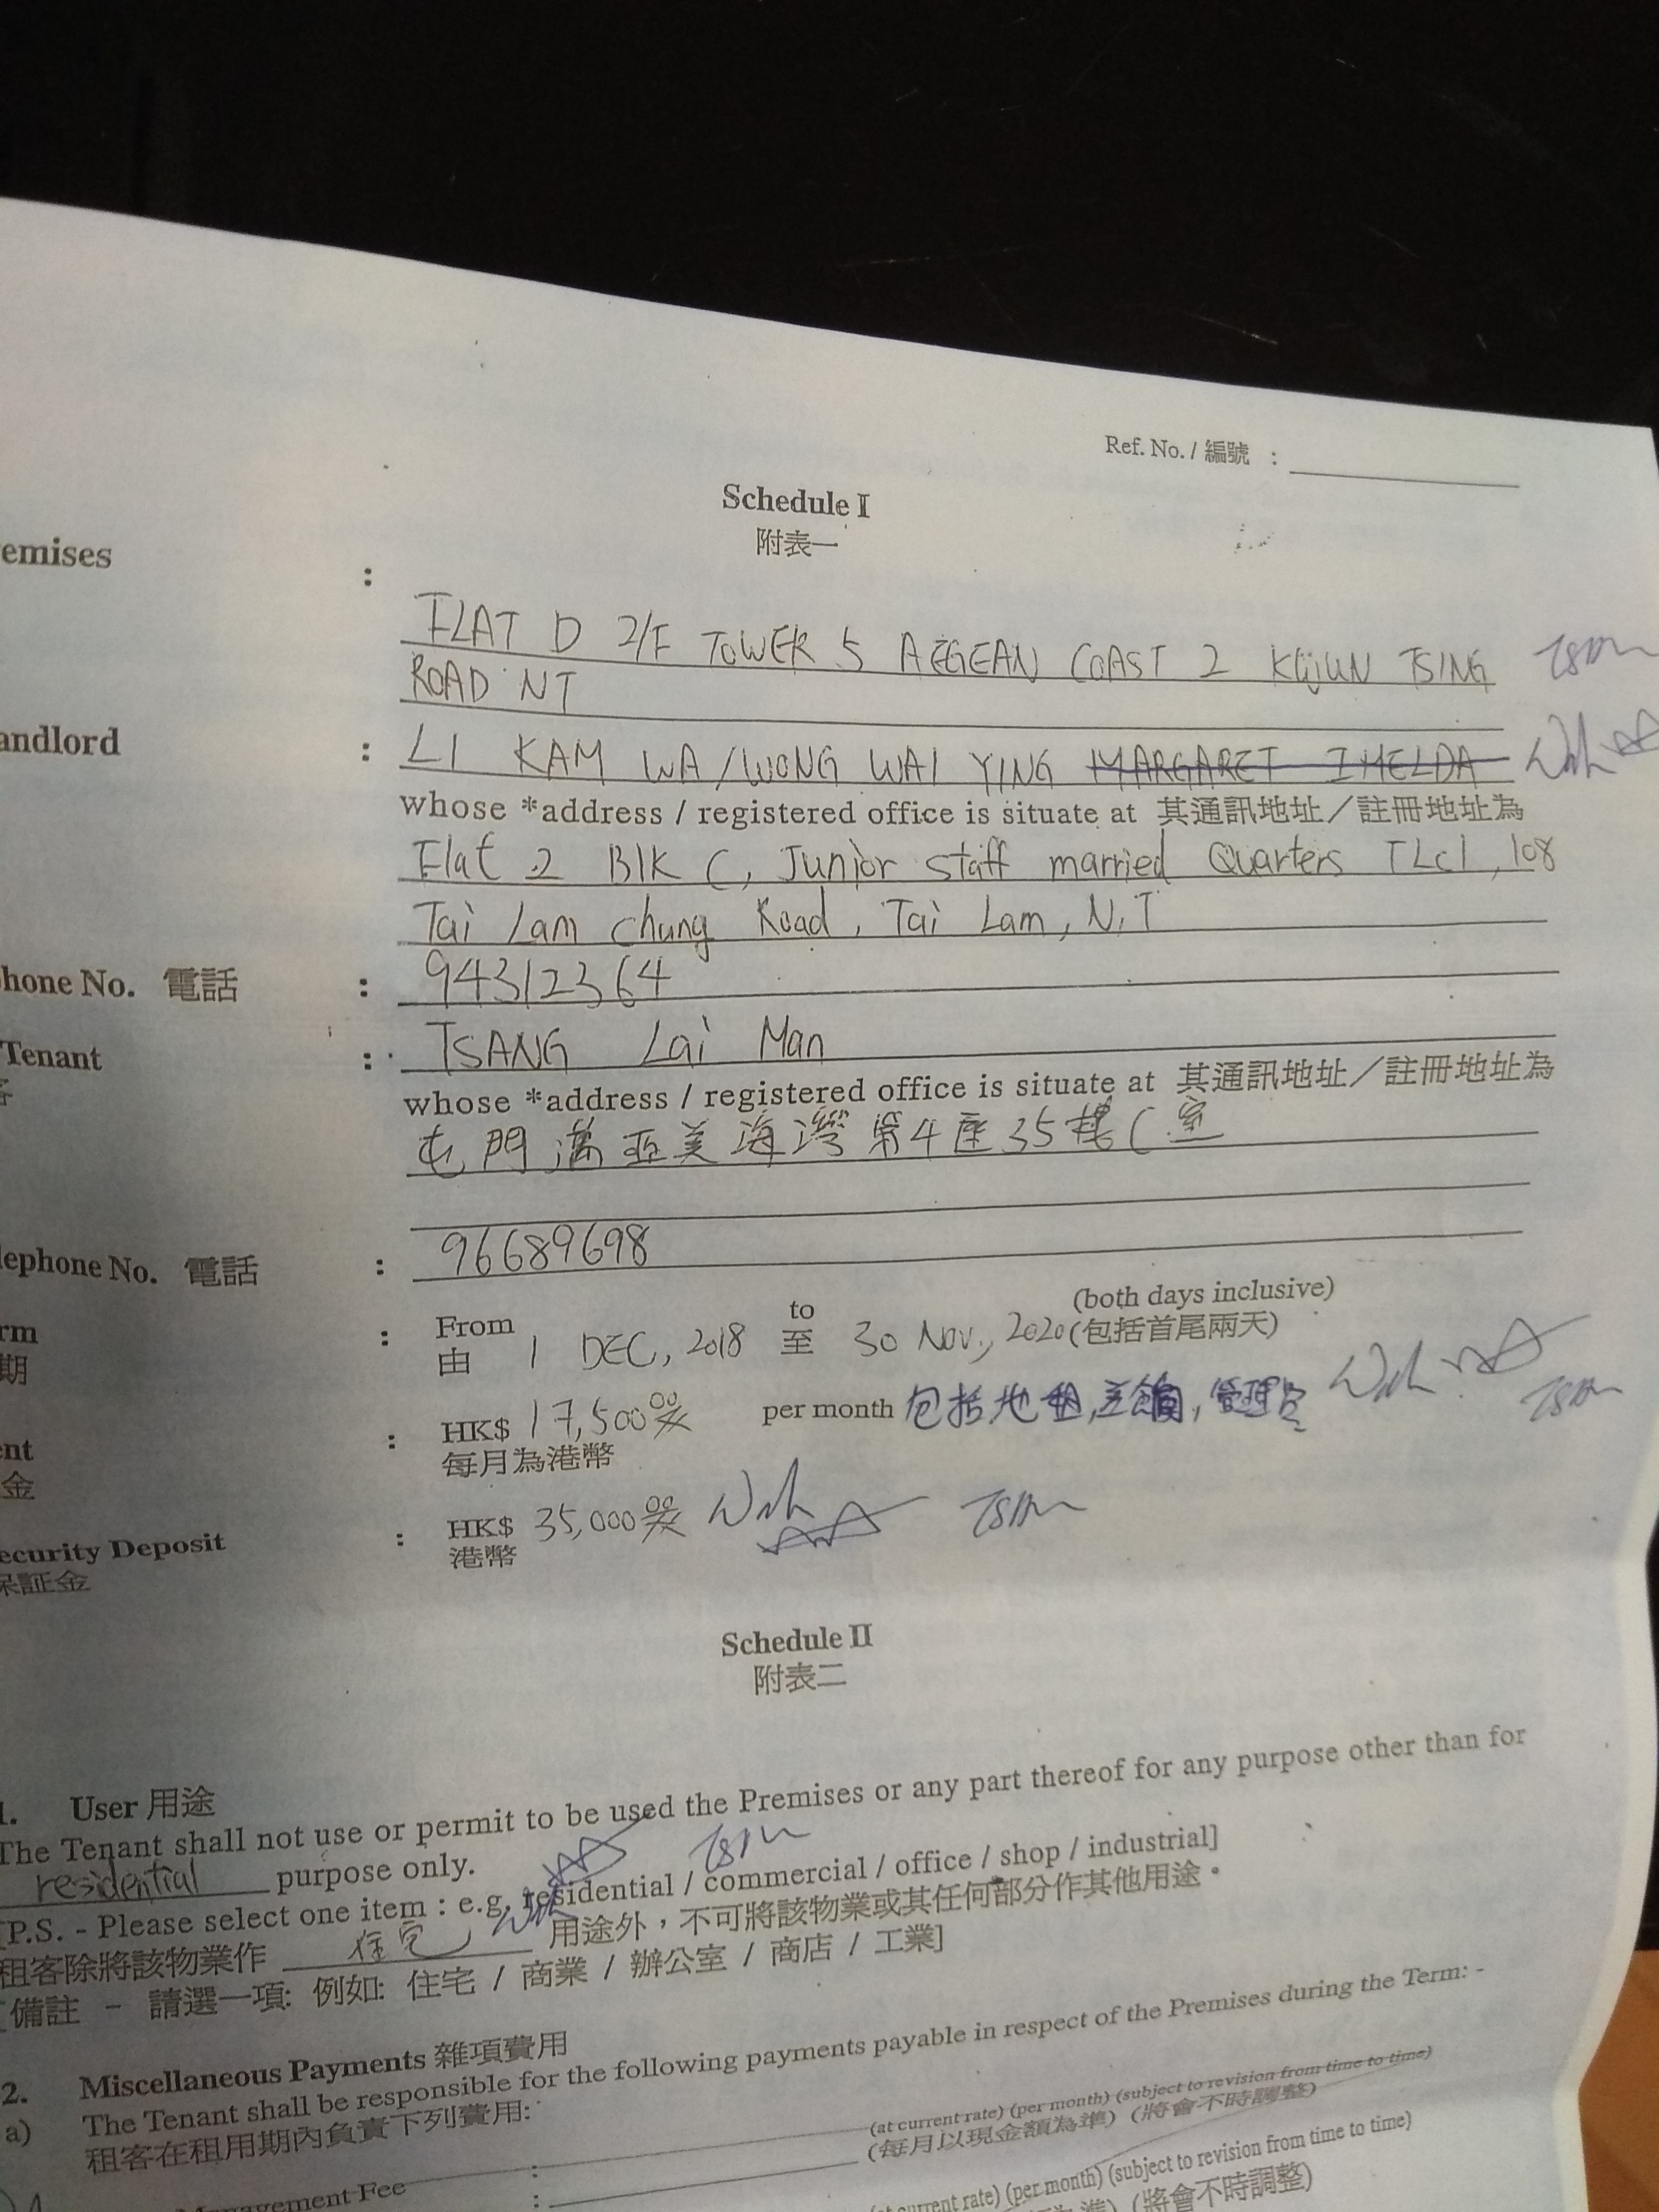 Ref. No. / 編號 :
Schedule I
附表一
emises :
FLAT D 2/F TOWER 5 AEGEAN COAST 2 KWUN TSING
ROAD NT
andlord : LI KAM WA/WONG WAI YING MARGARET IMELDA
whose *address / registered office is situate at 其通訊地址／註冊地址為
Flat 2 Blk C, Junior staff married Quarters TLCI, 108
Tai Lam Chung Road, Tai Lam, N.T
hone No. 電話 : 94312364
Tenant : TSANG Lai Man
客
whose *address / registered office is situate at 其通訊地址／註冊地址為
屯門 亞美海灣第4座35樓C室
lephone No. 電話 : 96689698
(both days inclusive)
rm : From 1 DEC, 2018 to 30 Nov., 2020 (包括首尾兩天)
期 由 至
ent : HK$ 17,500 per month 包括地租, 差餉, 管理
金 每月為港幣
ecurity Deposit : HK$ 35,000
保証金 港幣
Schedule II
附表二
1. User 用途
The Tenant shall not use or permit to be used the Premises or any part thereof for any purpose other than for
residential purpose only.
[P.S. - Please select one item : e.g. residential / commercial / office / shop / industrial]
租客除將該物業作 住宅 用途外，不可將該物業或其任何部分作其他用途。
[備註 - 請選一項: 例如: 住宅 / 商業 / 辦公室 / 商店 / 工業]
2. Miscellaneous Payments 雜項費用
a) The Tenant shall be responsible for the following payments payable in respect of the Premises during the Term: -
租客在租用期內負責下列費用:
(at current rate) (per month) (subject to revision from time to time)
(每月以現金額為準) (將會不時調整)
Management Fee :
(at current rate) (per month) (subject to revision from time to time)
(將會不時調整)